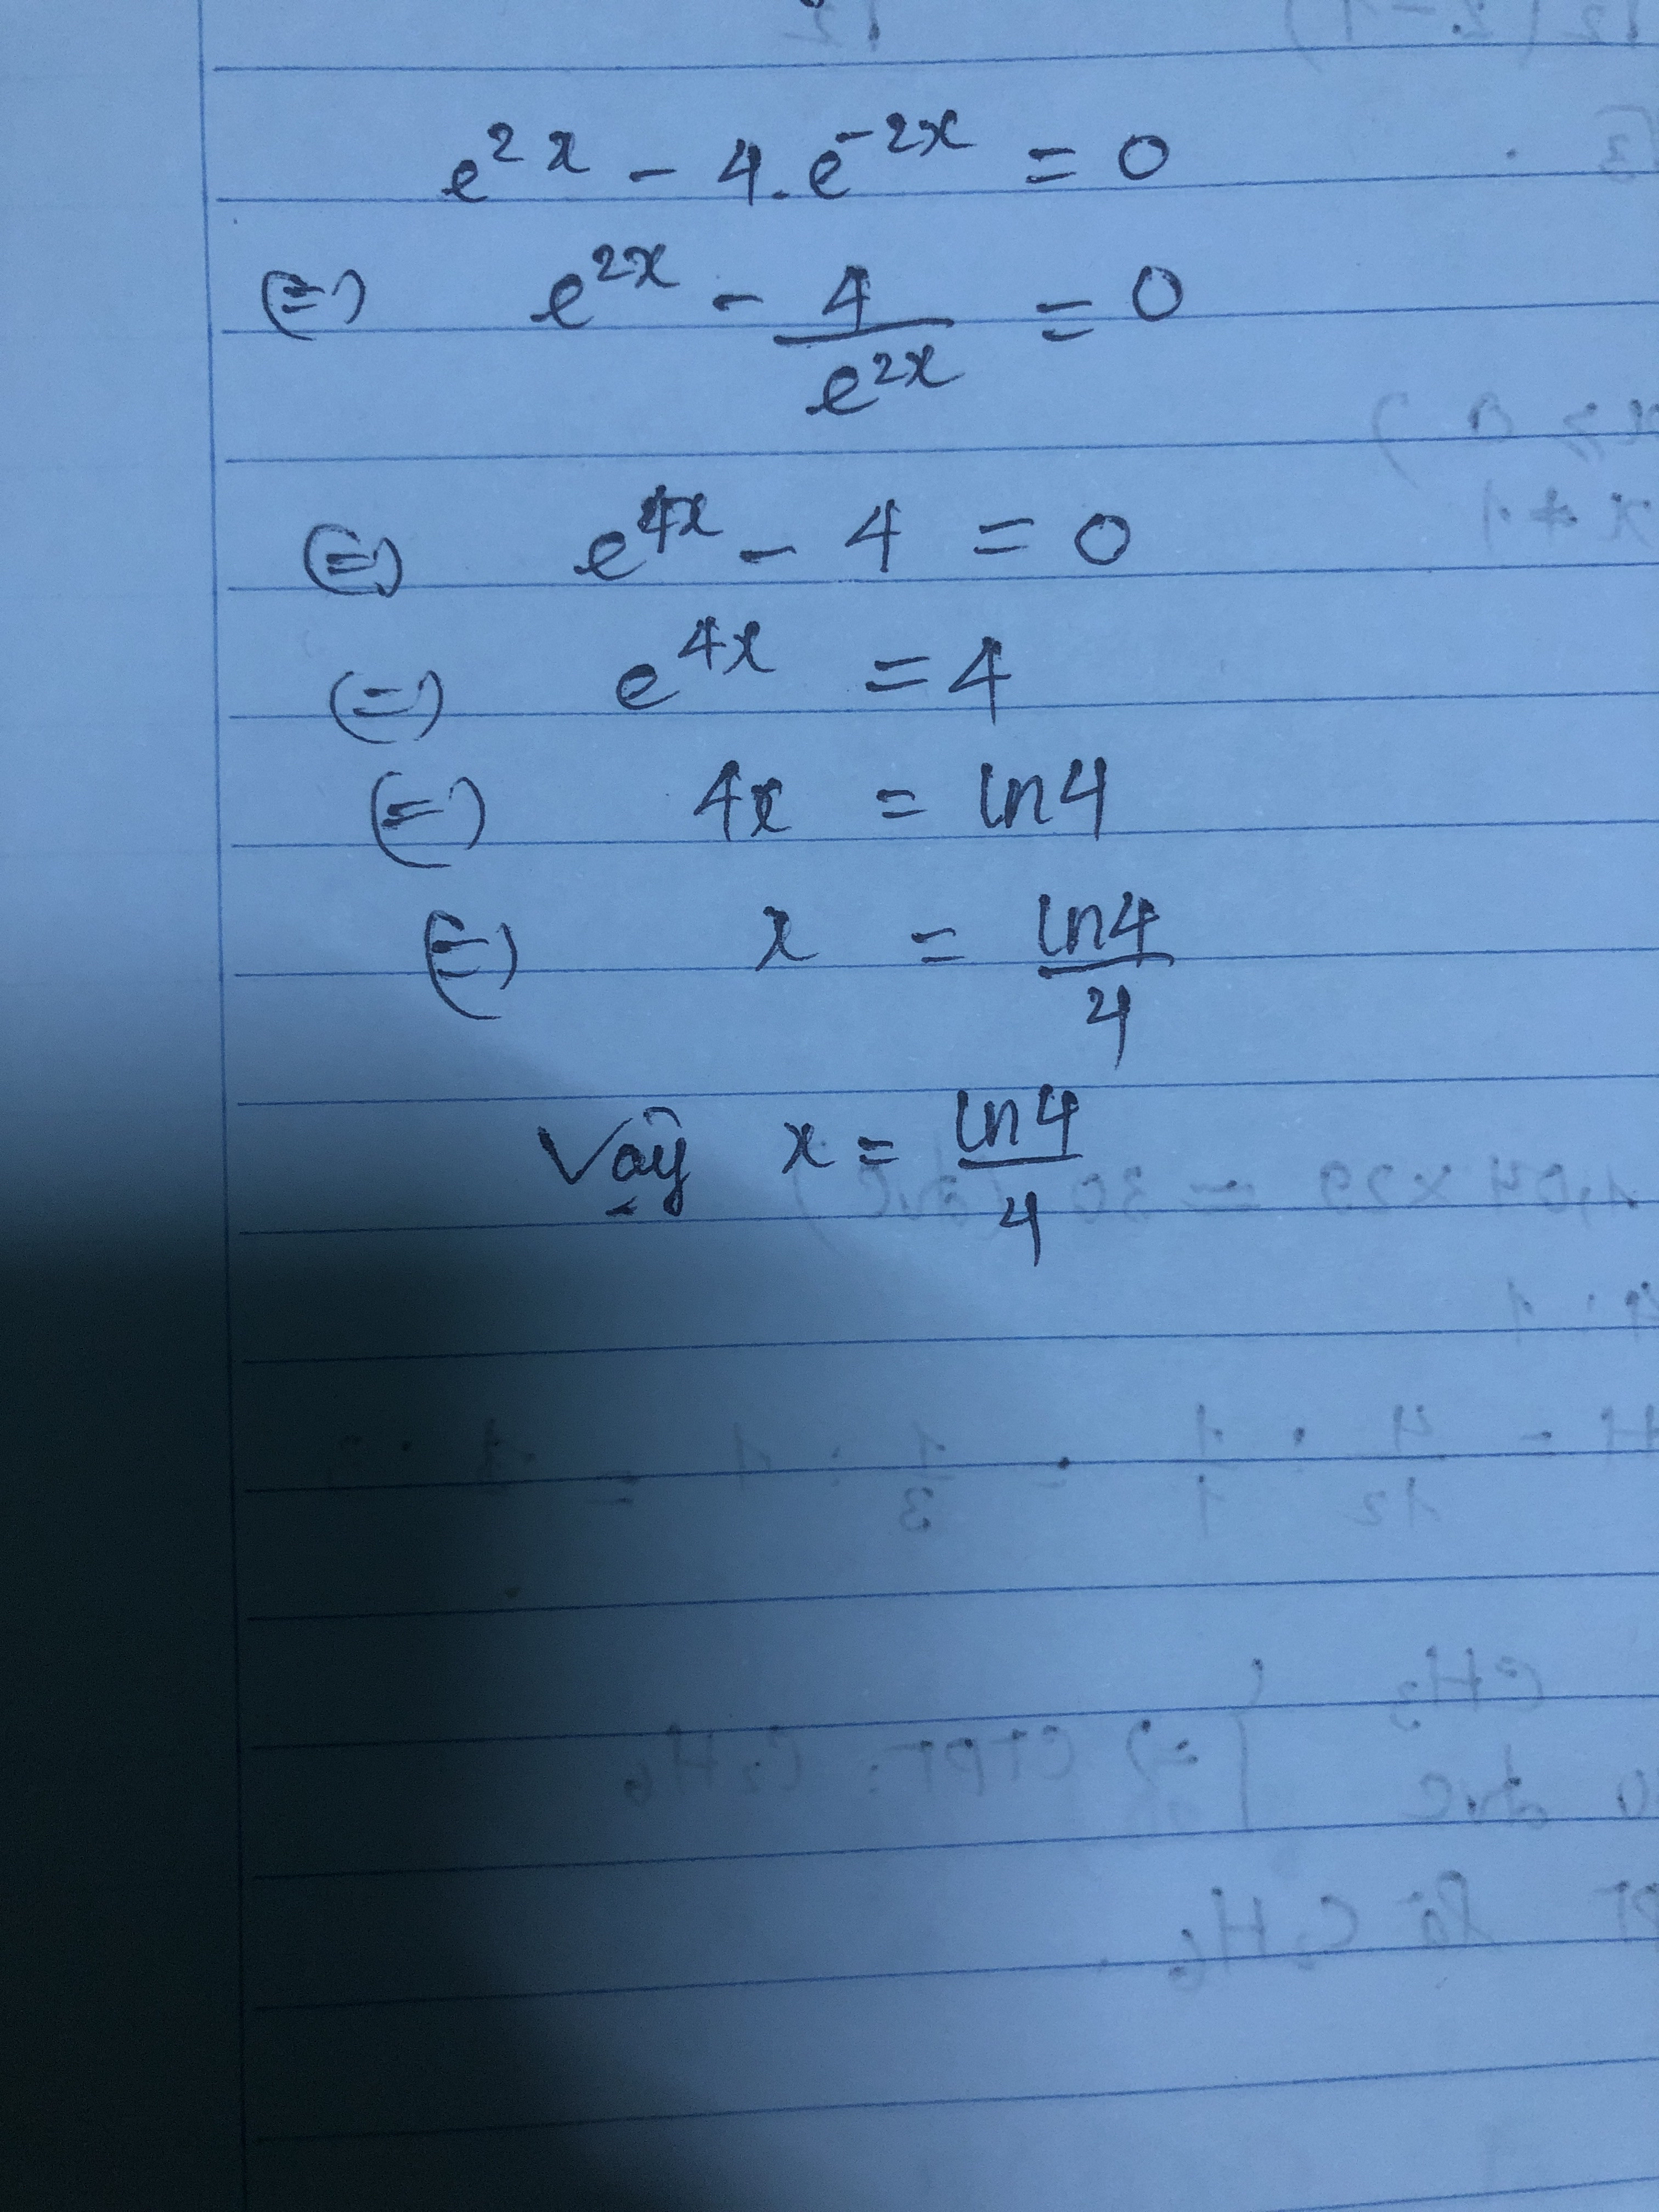 e^{2x} - 4.e^{-2x} = 0
(=) e^{2x} - \frac{4}{e^{2x}} = 0
(=) e^{4x} - 4 = 0
(=) e^{4x} = 4
(=) 4x = ln4
(=) x = \frac{ln4}{4}
Vậy x = \frac{ln4}{4}